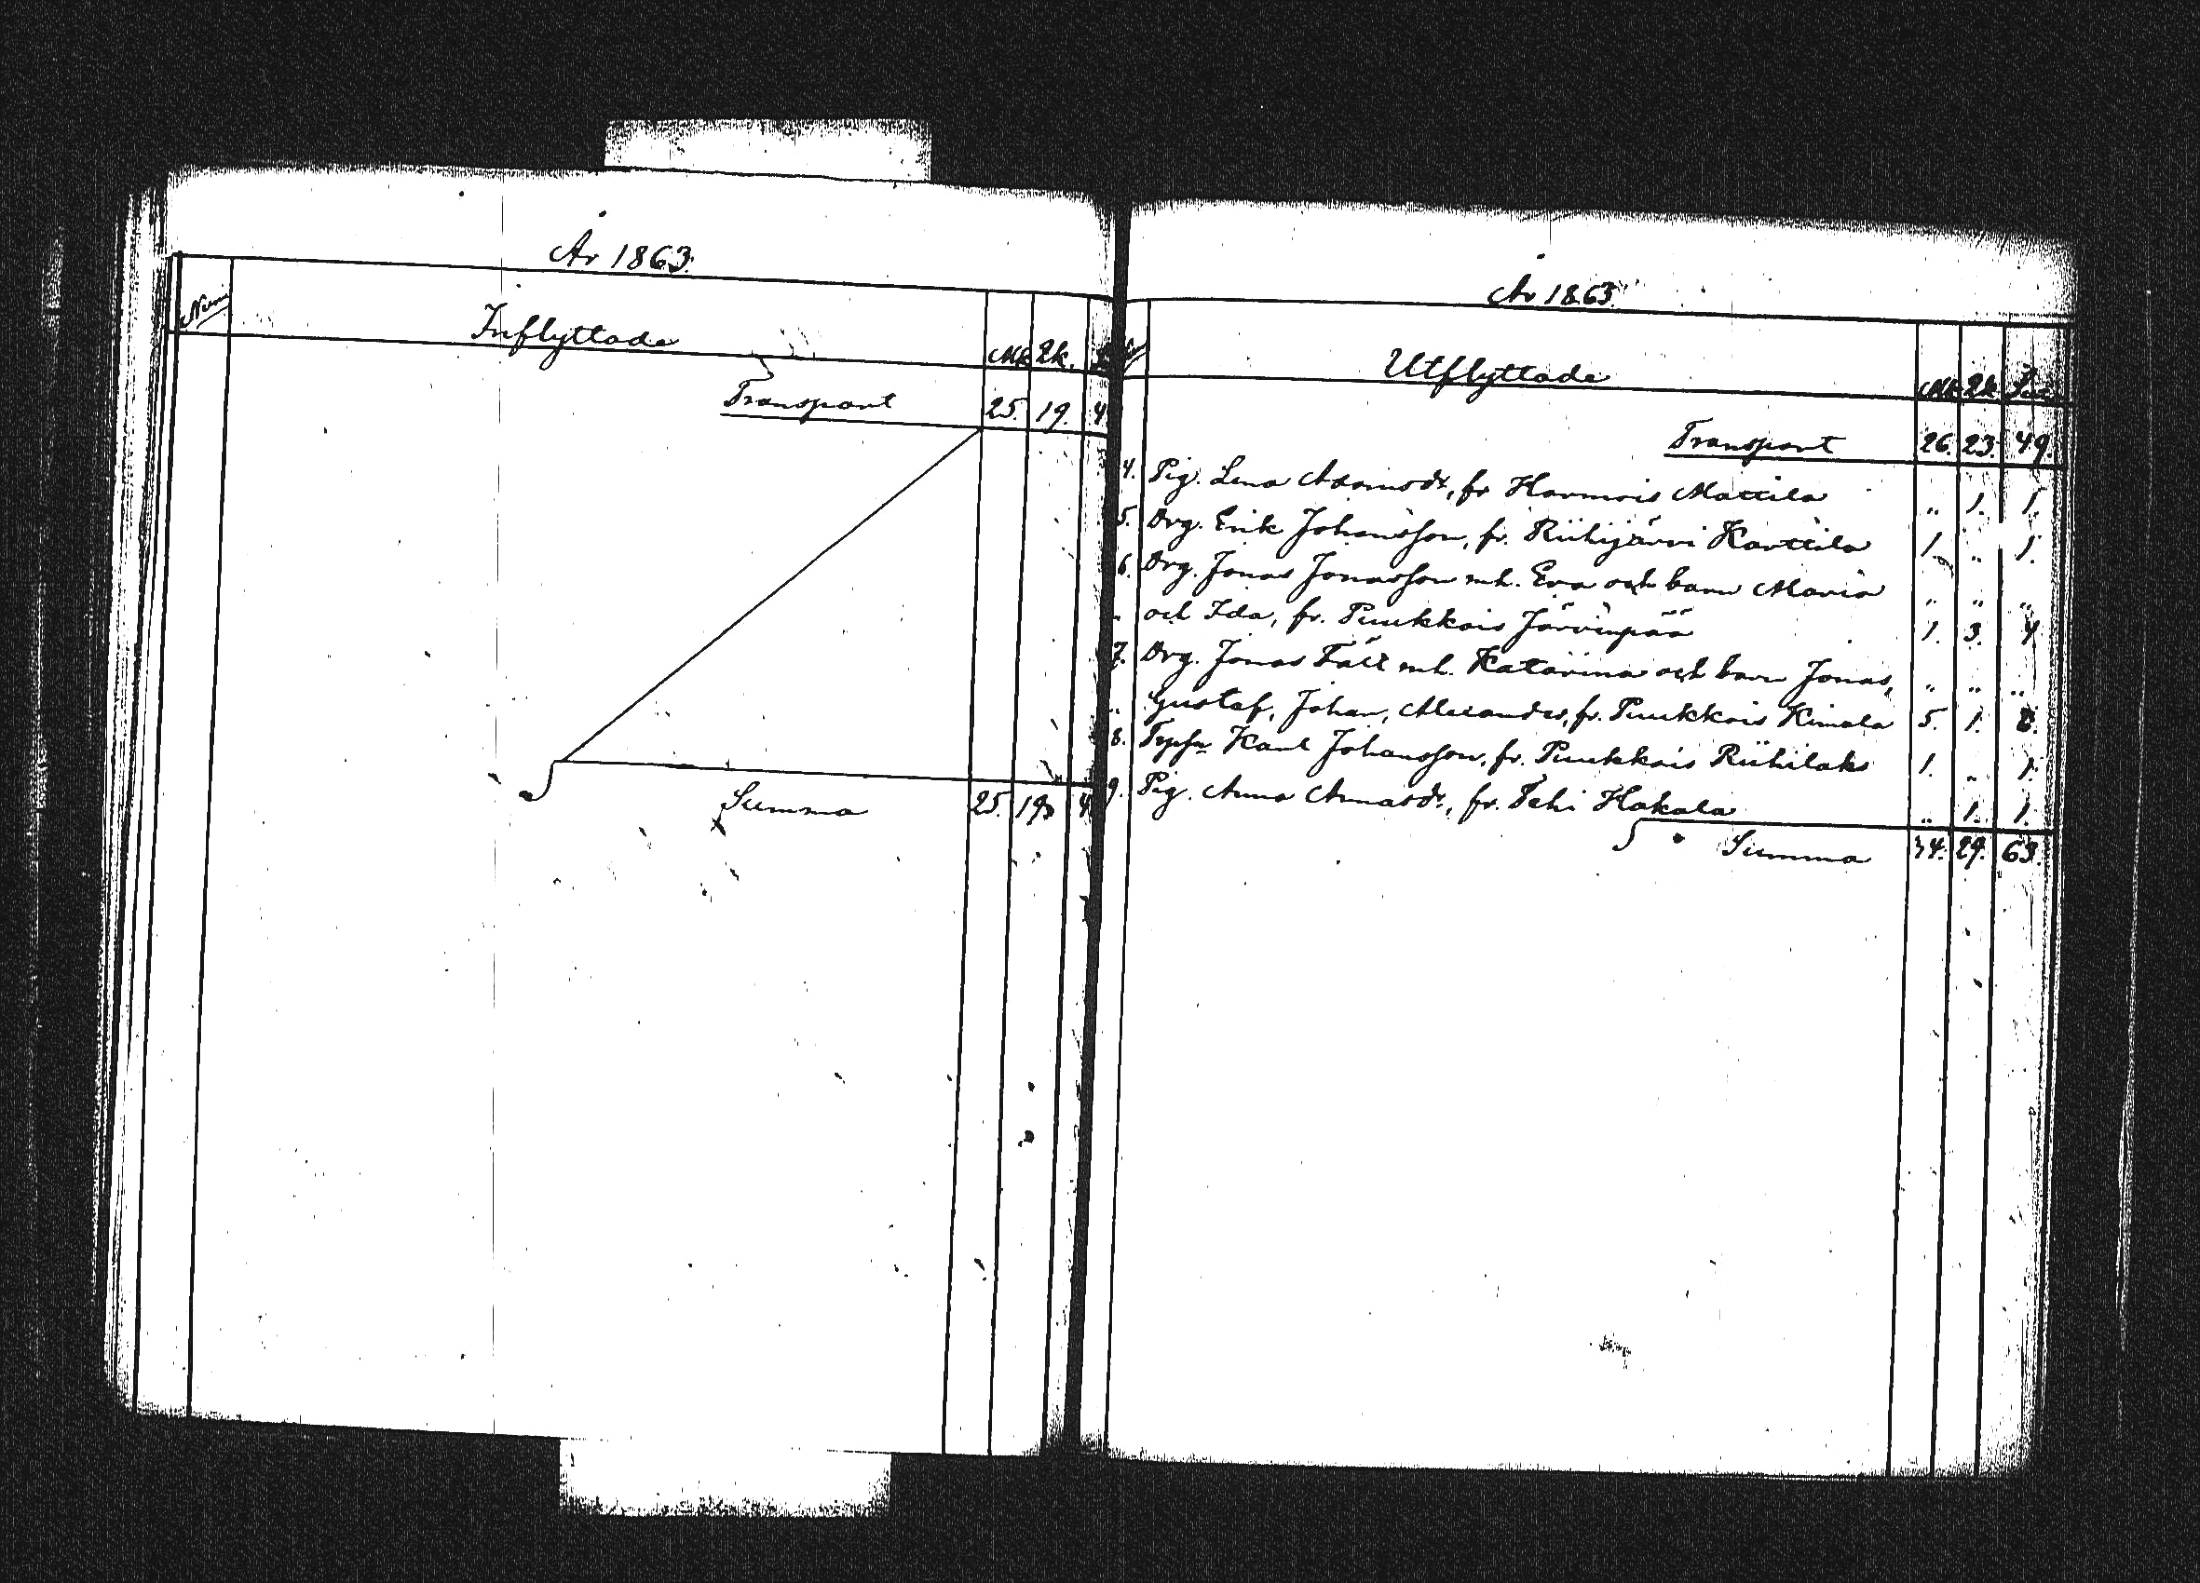 År 1863.
Num
Inflyttade
Mk. Qk.
Transport 25. 19. 4
Summa 25. 19. 4
År 1863.
Utflyttade
Mk. Qk. Sum.
Transport 26. 23. 49.
4. Pig. Lena Adamsdr, fr Harmois Mattila „ 1. 1.
5. Drg. Erik Johansson, fr. Riihijärvi Karttila 1. „ 1.
6. Drg. Jonas Jonasson mh. Eva och barn Maria „ „ „
„ och Ida, fr. Puukkois Järvenpää 1. 3. 4
7. Drg. Jonas mh. Katarina och barn Jonas, „ „ „
„ Gustaf, Johan, Alexander, fr. Puukkois Kimala 5. 1. 6.
8. Karl Johansson, fr. Puukkois Riihilaks 1. „ 1.
9. Pig. Anna Annasdr, fr. Tehi Hakala „ 1. 1.
Summa 34. 29. 63.